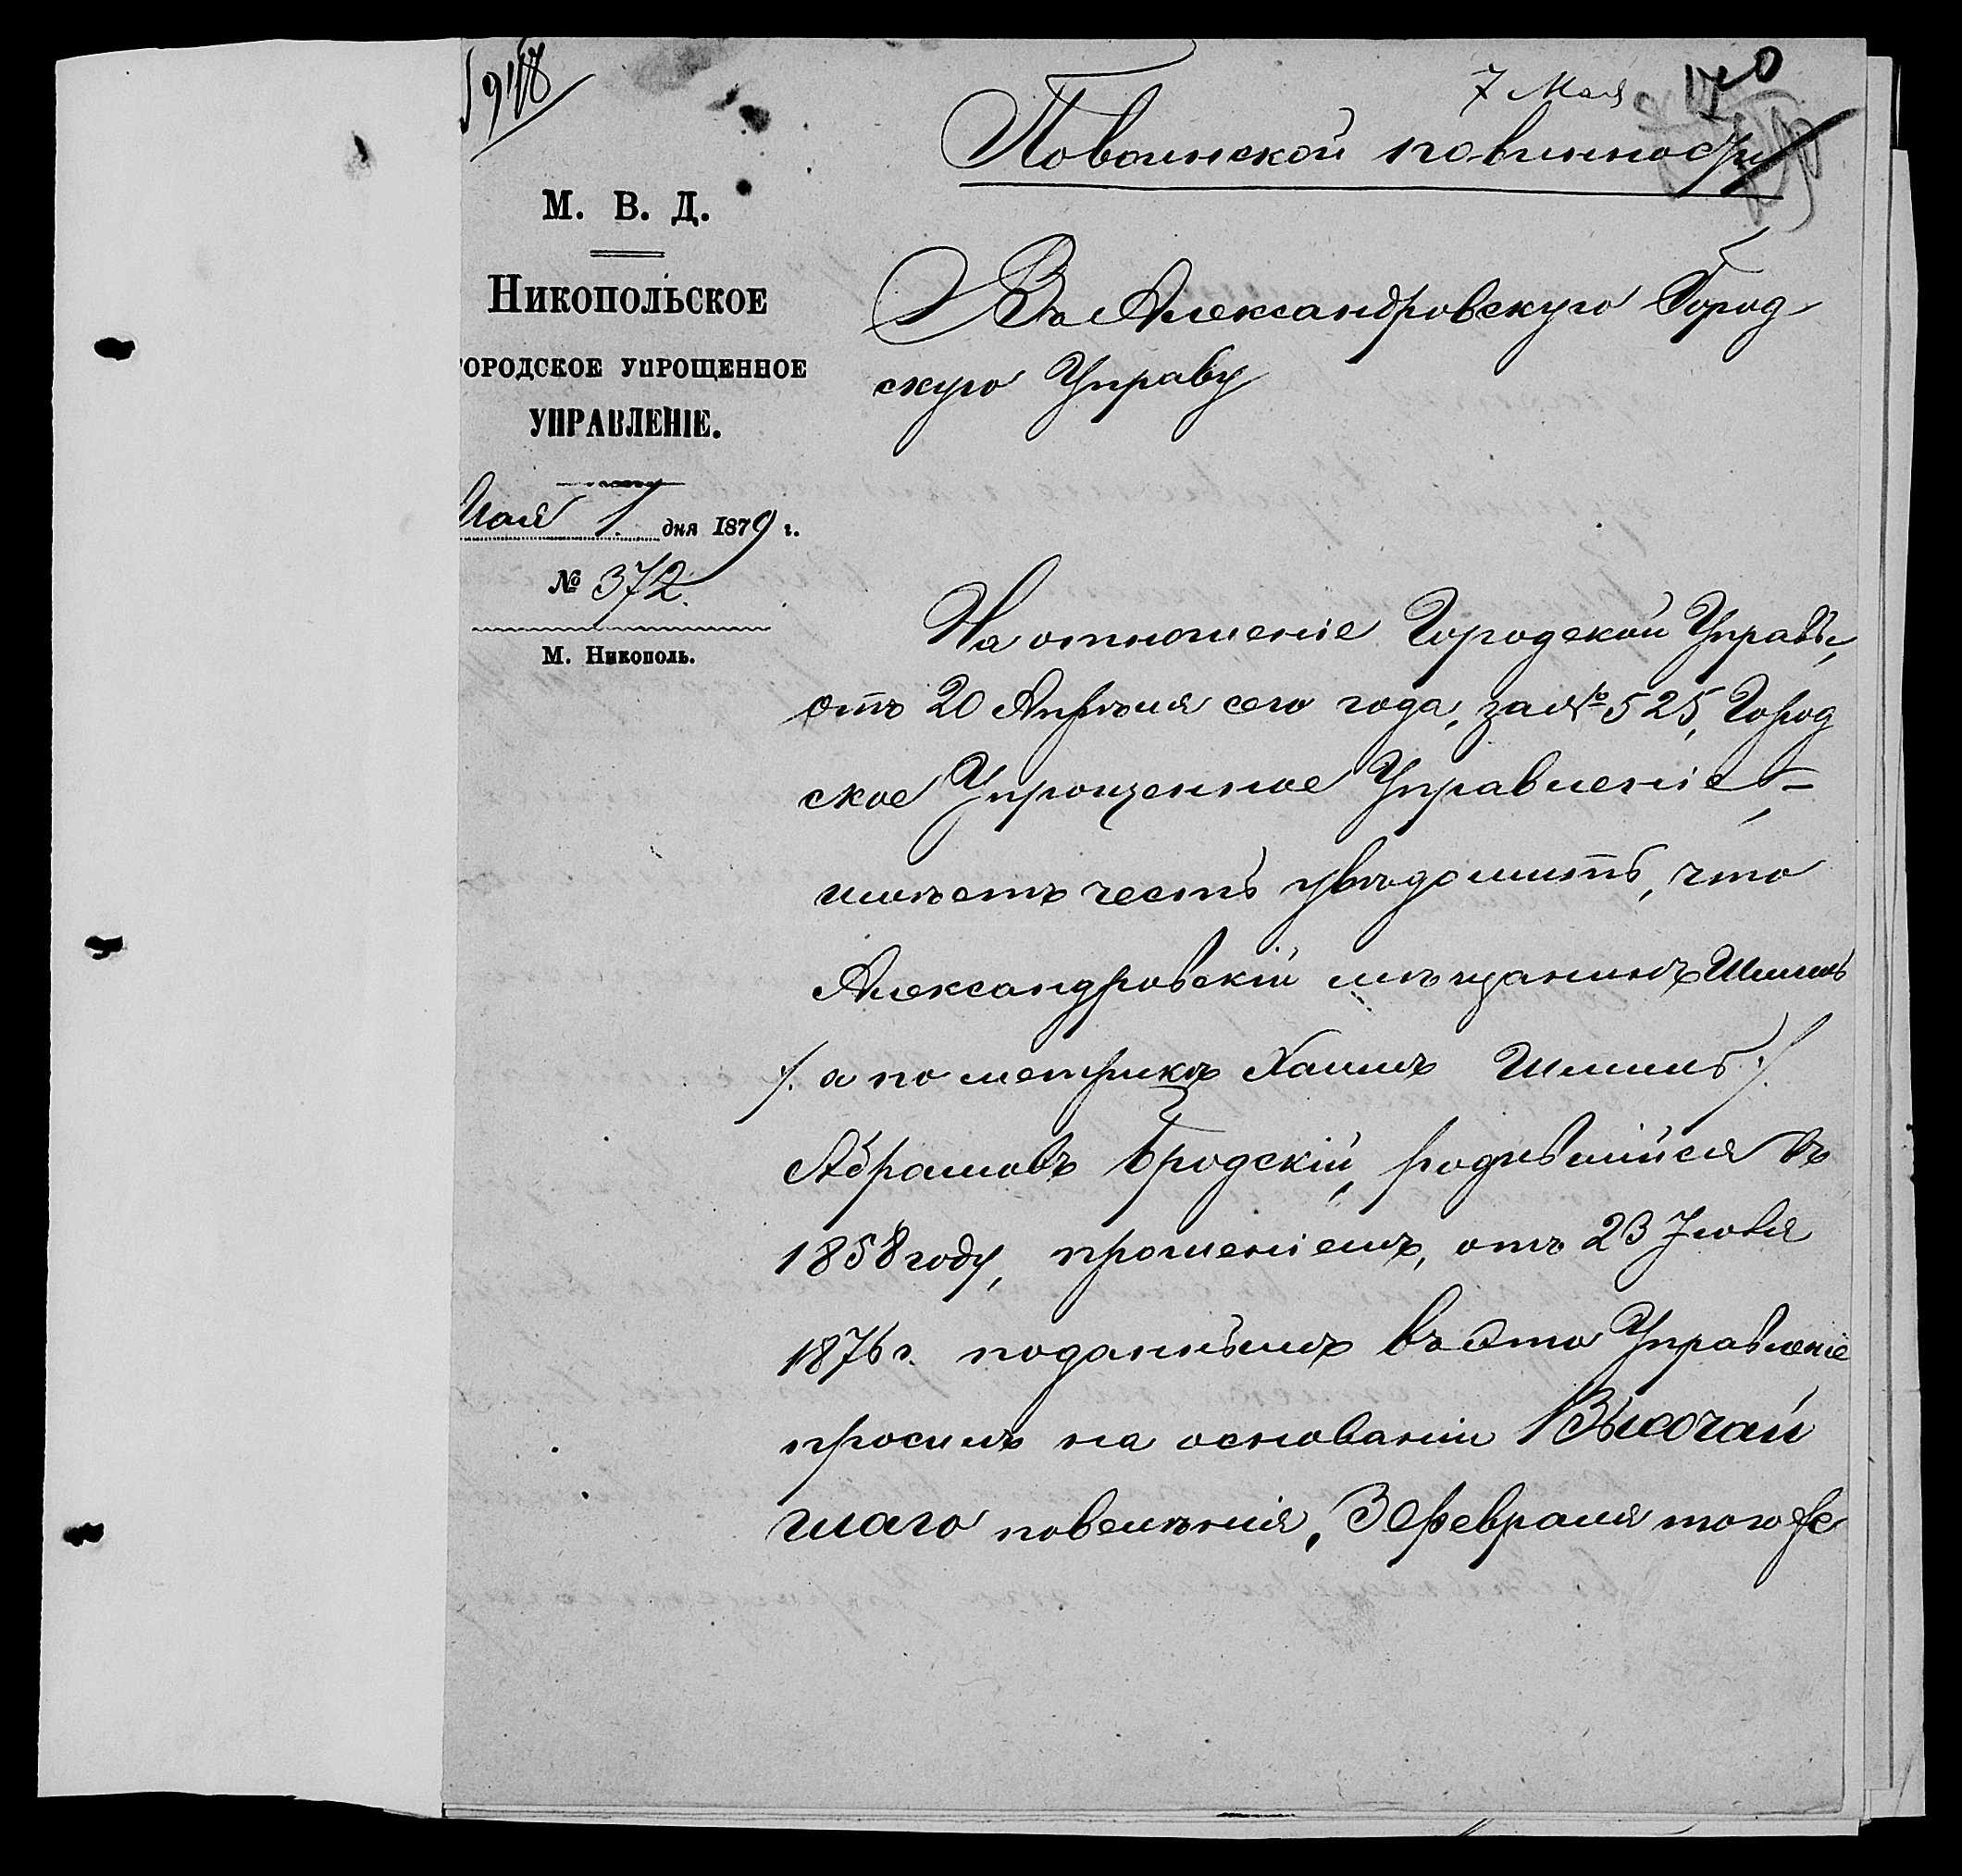 7 Мая
По воинской повинности
М. В. Д.
Никопольское
городское упрощенное
управленіе.
Мая 1 дня 1879 г.
№ 372.
М. Никополь.
Въ Александровскую Город
скую Управу
На отношеніе Городской Управы,
отъ 20 Апрѣля сего года, за № 525, Город
ское Упрощенное Управленіе, –
имѣетъ честь увѣдомить, что
Александровскій мѣщанинъ Шмиль
/. а по метрикѣ Хаимъ Шмиль ./
Абрамовъ Бродскій, родившійся въ
1858 году, прошеніемъ, отъ 23 Іюля
1876 г. поданнымъ въ это Управленіе
просилъ на основаніи Высочай
шаго повелѣнія, 3 Февраля того же